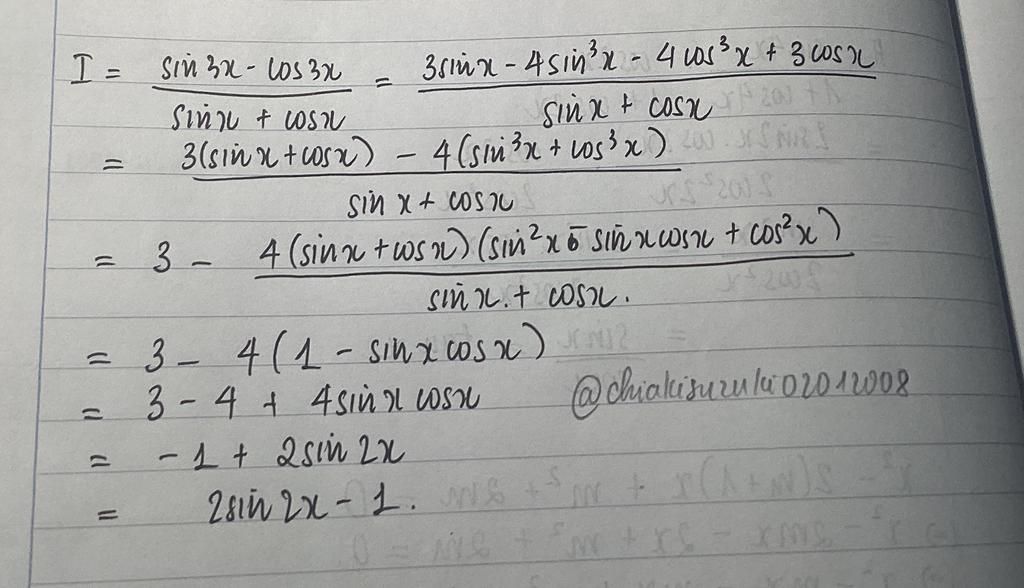 I = (sin 3x - cos 3x)/(sin x + cos x) = (3 sin x - 4 sin³x - 4 cos³x + 3 cos x)/(sin x + cos x)
= (3(sin x + cos x) - 4(sin³x + cos³x))/(sin x + cos x)
= 3 - (4(sin x + cos x)(sin²x - sin x cos x + cos²x))/(sin x + cos x).
= 3 - 4(1 - sin x cos x)
= 3 - 4 + 4 sin x cos x
@chiakisuzuki02012008
= -1 + 2 sin 2x
= 2 sin 2x - 1.